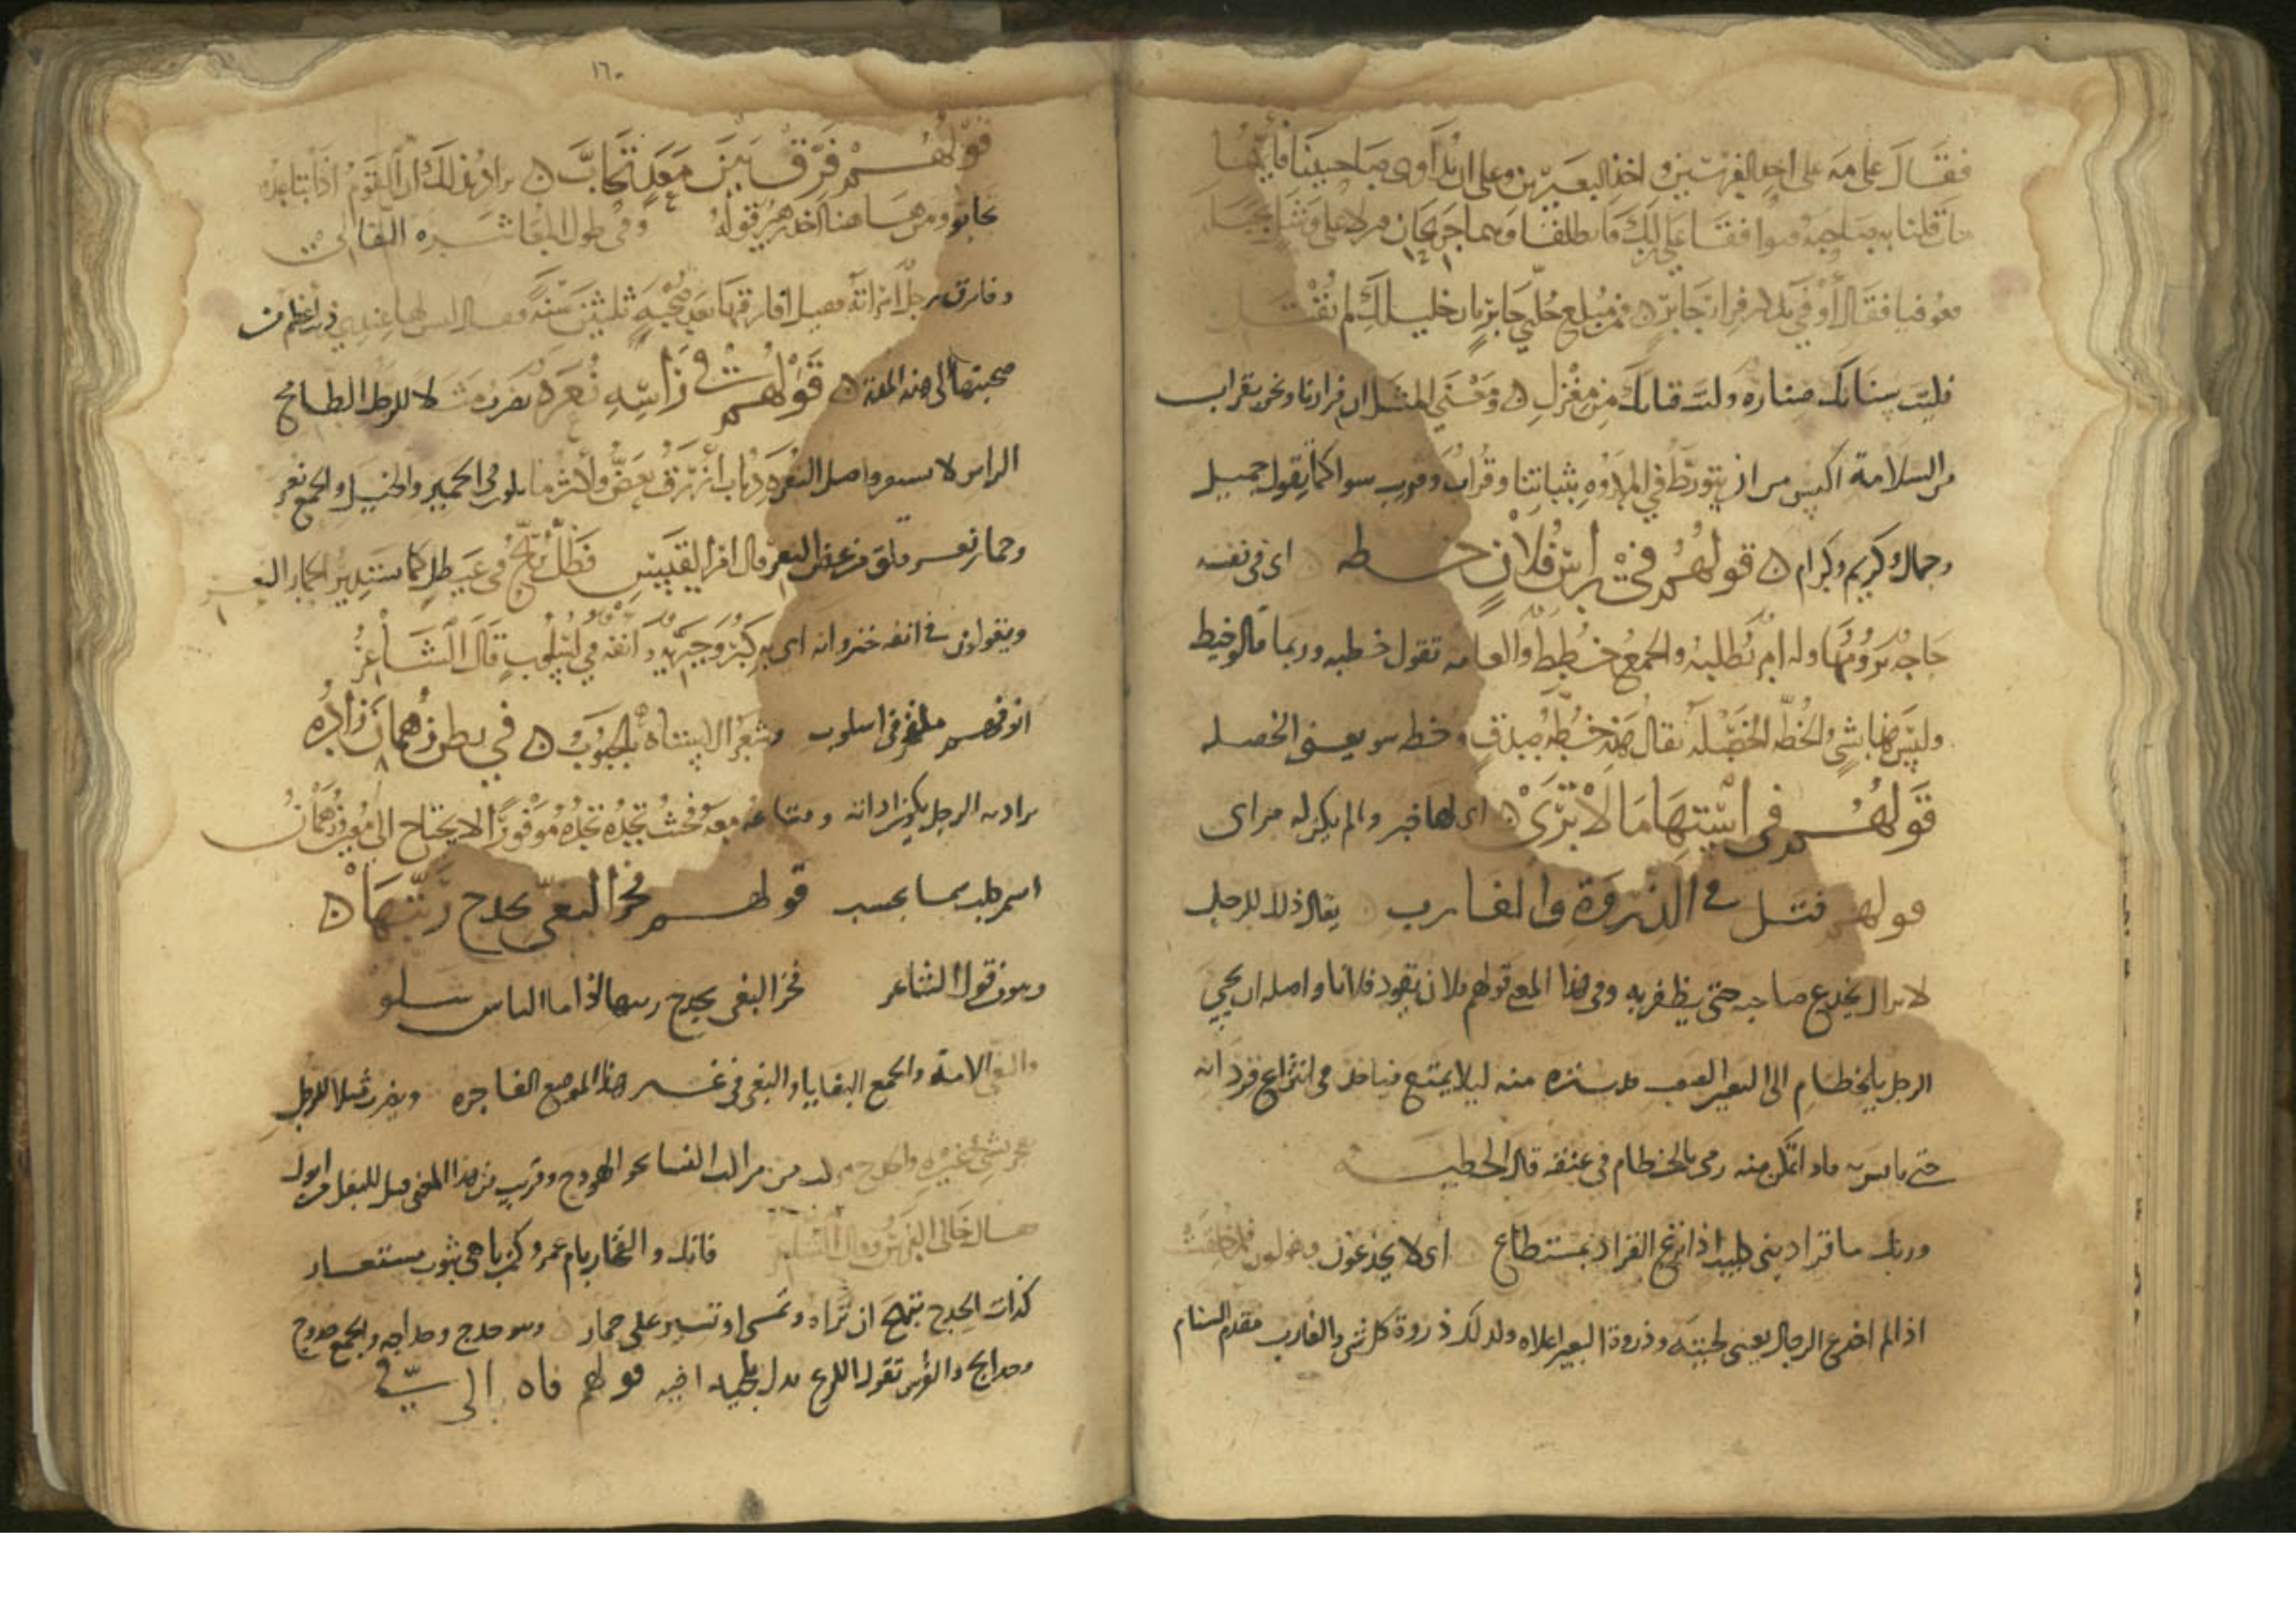 فقال علي مه على احد الفرسين واخذ البعيرين وعلى ان نداوي صاحبينا فأيهما
مات قلنا به صاحبه فتوافقا على ذلك فانطلقا وهما جريحان
فقال أوفى بن مطر فرار جابر ۞ فمبلغ خلتي جابرا بان خليلك لم يقتل
فليت سنانك صناره وليت قناتك من مغزل ۞ ومعنى المثل ان فرارنا ونحن بقراب
من السلامة اكيس من ان نتورط في المكروه بثباتنا وقراب وقريب سوا كما يقول جميل
وجمال وكريم وكرام ۞ قولهم في رأس فلان خطه اي في نفسه
حاجه يرومها وله امر يطلبه والجمع خطط والعامه تقول خطيه وربما قالو خيط
وليس هذا بشي والخطه الخصله يقال هذه خطه صدق وخطه سو يعني الخصله
قولهم في استها ما لا ترى ۞ اي لها خبر وان لم يكن له مراى
قولهم فتل في الذروة والغارب يقال ذلك للرجل
لا يزال يخدع صاحبه حتى يظفر به وفي هذا المعنى قولهم فلان يقود فلانا واصله ان يجي
الرجل بالخطام الى البعير الصعب قد ستره منه ليلا يمتنع فياخذ في انتزاع قردانه
حتى يانس به فاذا تمكن منه رمى بالخطام في عنقه قال الحطيئه
وربك ما قراد بني كليب اذا نزع القراد بمستطاع اي لا يخدعون
اذا لم اخدع الرجال يعني لحيته وذروة البعير اعلاه وكذلك ذروة كل شي والغارب مقدم السنام
١٦٠
قولهم فرق بين معد تحاب ۞ يراد بذلك ان القوم اذا تباعدو
تحابو ومن هاهنا اخذ زهير قوله وفي طول المعاشره التقالي
وفارق رجل امرأته فقيل افارقتها بعد صحبة ثلثين سنة فقال ليس لها عندي ذنب اعظم من
صحبتها الى هذه المدة ۞ قولهم في رأسه نعرة يضرب مثلا للرجل الطامح
الراس لا يستقر واصل النعرة ذباب ازرق يعض ولأكثر ما يكون في الحمير والخيل والجمع نعر
وحمار نعر قلق من عض النعر قال امرأ القيس فظل يرنح في غيطل كما يستدير الحمار النعر
ويقولون في انفه خنزوانه اي به كبر وجبريه وانفه في اسلوب قال الشاعر
انوفهم ملفخر في اسلوب وشعر الاستاه بالجبوب ۞ في بطن زهمان زاده
يراد به الرجل يكون اداته ومتاعه معه فحيث تجده تجده موفورا لا يحتاج الى معين وزهمان
اسم كلب بما يحسب قولهم فخر البغي بحدج ربتها ۞
وهو من قول الشاعر فخر البغي بحدج ربتها اذا ما الناس شلو
والبغي الامة والجمع البغايا والبغي في غير هذا الموضع الفاجره ويضرب مثلا للرجل
يفخر بشي غيره والحدج مركب من مراكب النسا نحو الهودج وقريب من هذا المعنى قيل للبغل من ابوك
فقال خالي الفرس وقال الشاعر فانك والفخار بام عمرو كمن باهى بثوب مستعار
كذات الحدج تبهج ان تراه وتمسى او تسير على حمار وهو حدج وحداجه والجمع حدوج
وحدايج والفرس تقول قولهم فاه الى في